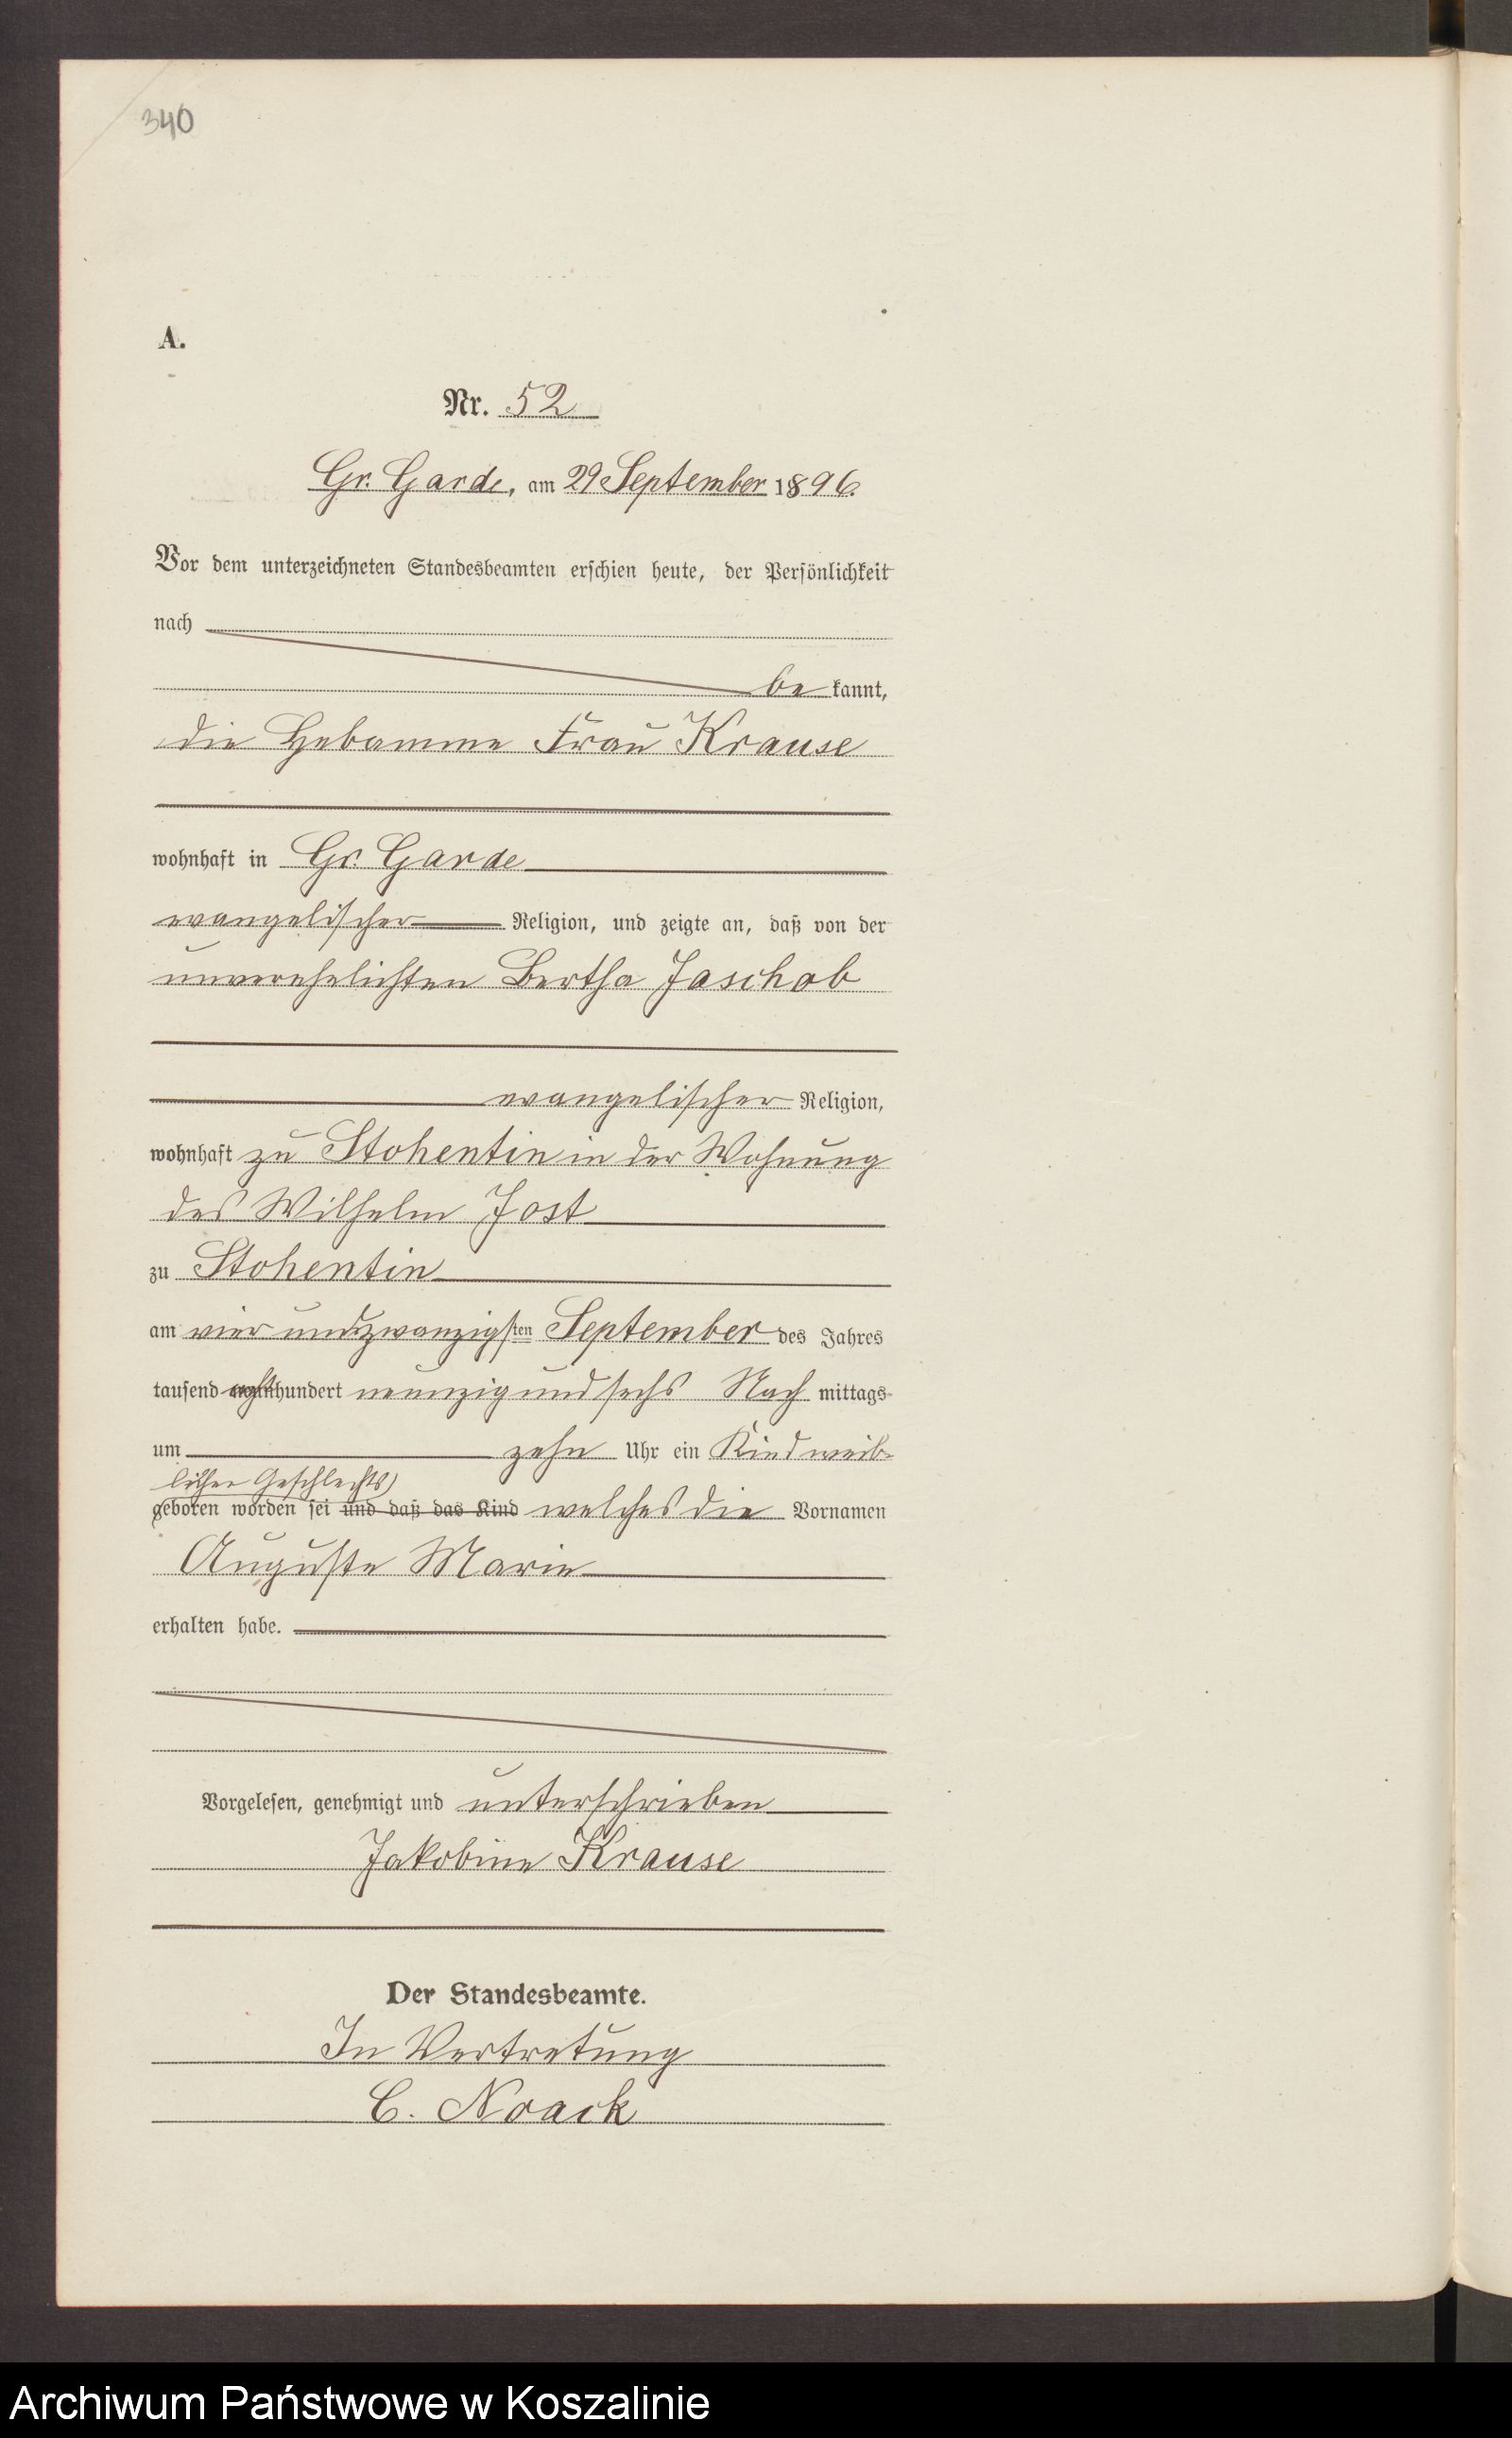 340
A.
Nr. 52
Gr. Garde, am 29 September 1896.
Vor dem unterzeichneten Standesbeamten erschien heute, der Persönlichkeit
nach
be kannt,
die Hebamme Frau Krause
wohnhaft in Gr. Garde
evangelischer Religion, und zeigte an, daß von der
unverehelichten Bertha Jaschob
evangelischer Religion,
wohnhaft zu Stohentin in der Wohnung
des Wilhelm Jost
zu Stohentin
am vier und zwanzigsten September des Jahres
tausend achthundert neunzig und sechs Nach mittags
um zehn Uhr ein Kind weib-
lichen Geschlechts
geboren worden sei und daß das Kind welches die Vornamen
Auguste Marie
erhalten habe.
Vorgelesen, genehmigt und unterschrieben
Jakobine Krause
Der Standesbeamte.
In Vertretung
C. Noack
Archiwum Państwowe w Koszalinie